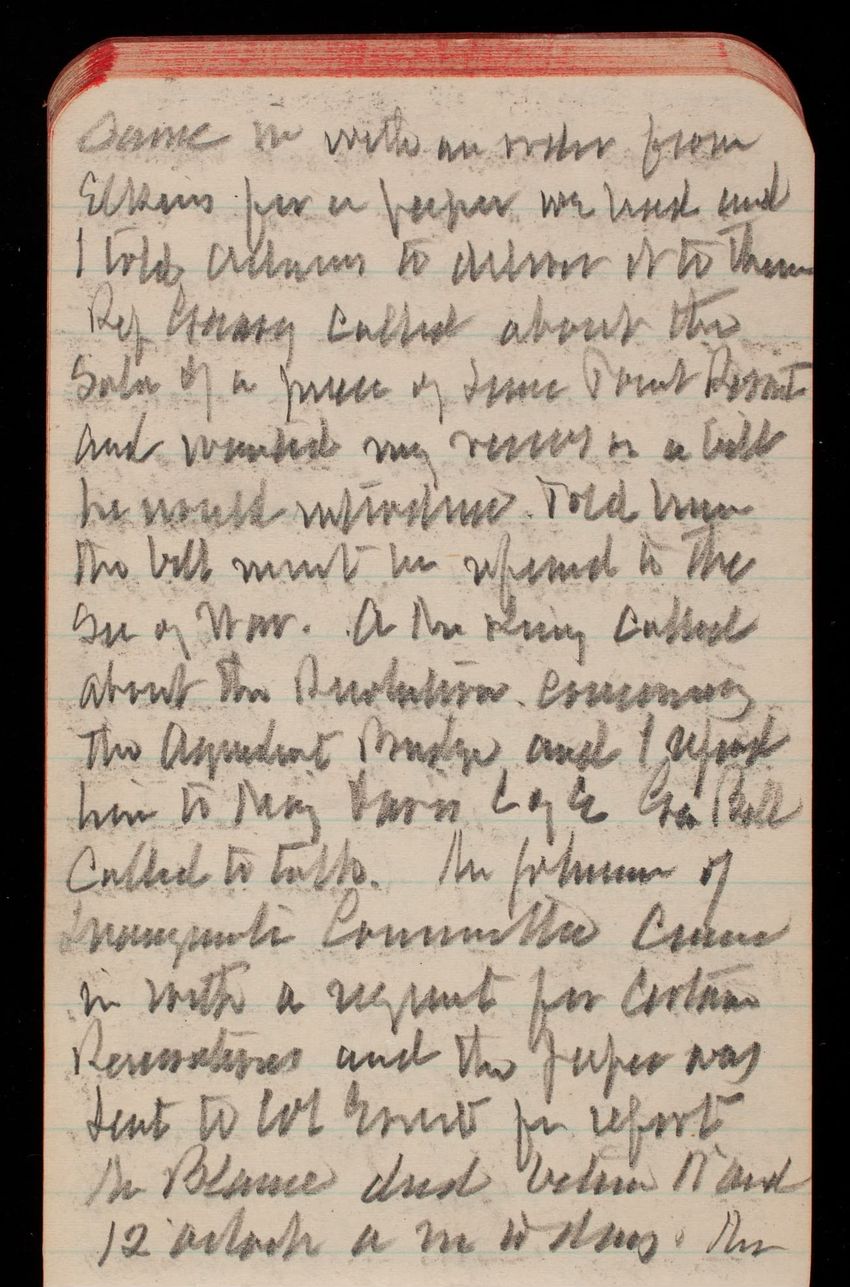 Came in with an order from
Elkins for a paper we had and
I told Adams to deliver it to them
Rep Geary called about the
Sale of a piece of Lime Point Resvt
and wanted my views on a bill
he would introduce. Told him
the bill must be refered to the
Sec of War. A Mr King called
about the Resolution concerning
the Aqueduct Bridge and I refered
him to Maj Davis C of E Gen Bell
Called to talk. Mr Johnson of
Inaugural Committee Came
in with a request for certain
Reservations and the paper was
Sent to Col Ernst for report
Mr Blaine died between 11 and
12 oclock a m to day. Mr